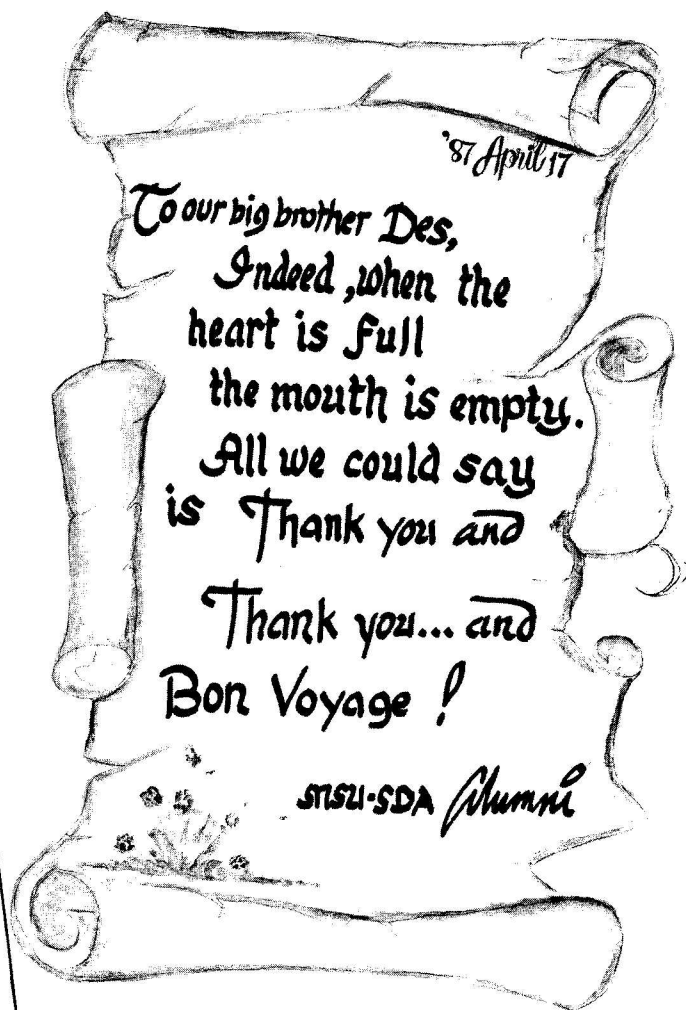 '87 April 17
To our big brother Des,
Indeed, when the
heart is full
the mouth is empty.
All we could say
is Thank you and
Thank you... and
Bon Voyage !
SNSU-SDA Alumni